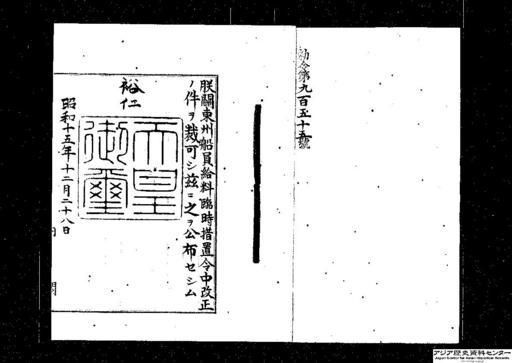 勅令第九百五十五號
朕關東州船員給料臨時措置令中改正
ノ件ヲ裁可シ茲ニ之ヲ公布セシム
裕仁
天皇御璽
昭和十五年十二月二十八日
内 閣
アジア歴史資料センター
Japan Center for Asian Historical Records